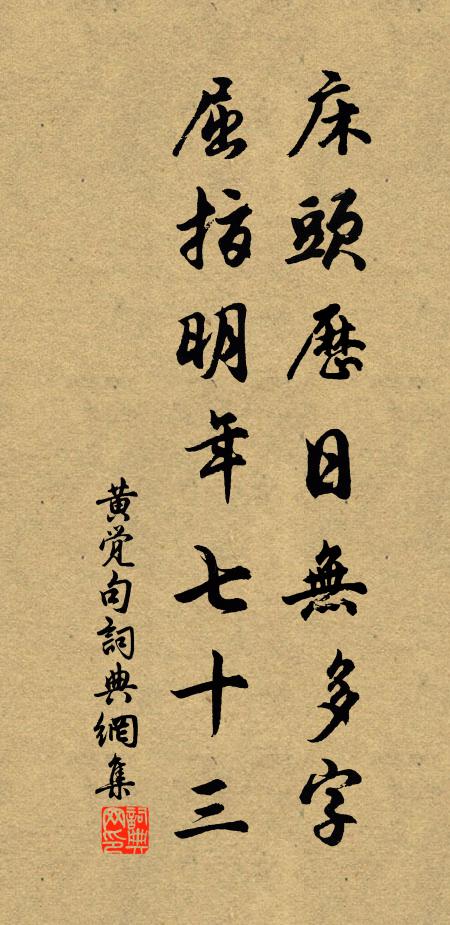 床頭歷日無多字
屈指明年七十三
黄觉句詞典網集
詞典网印